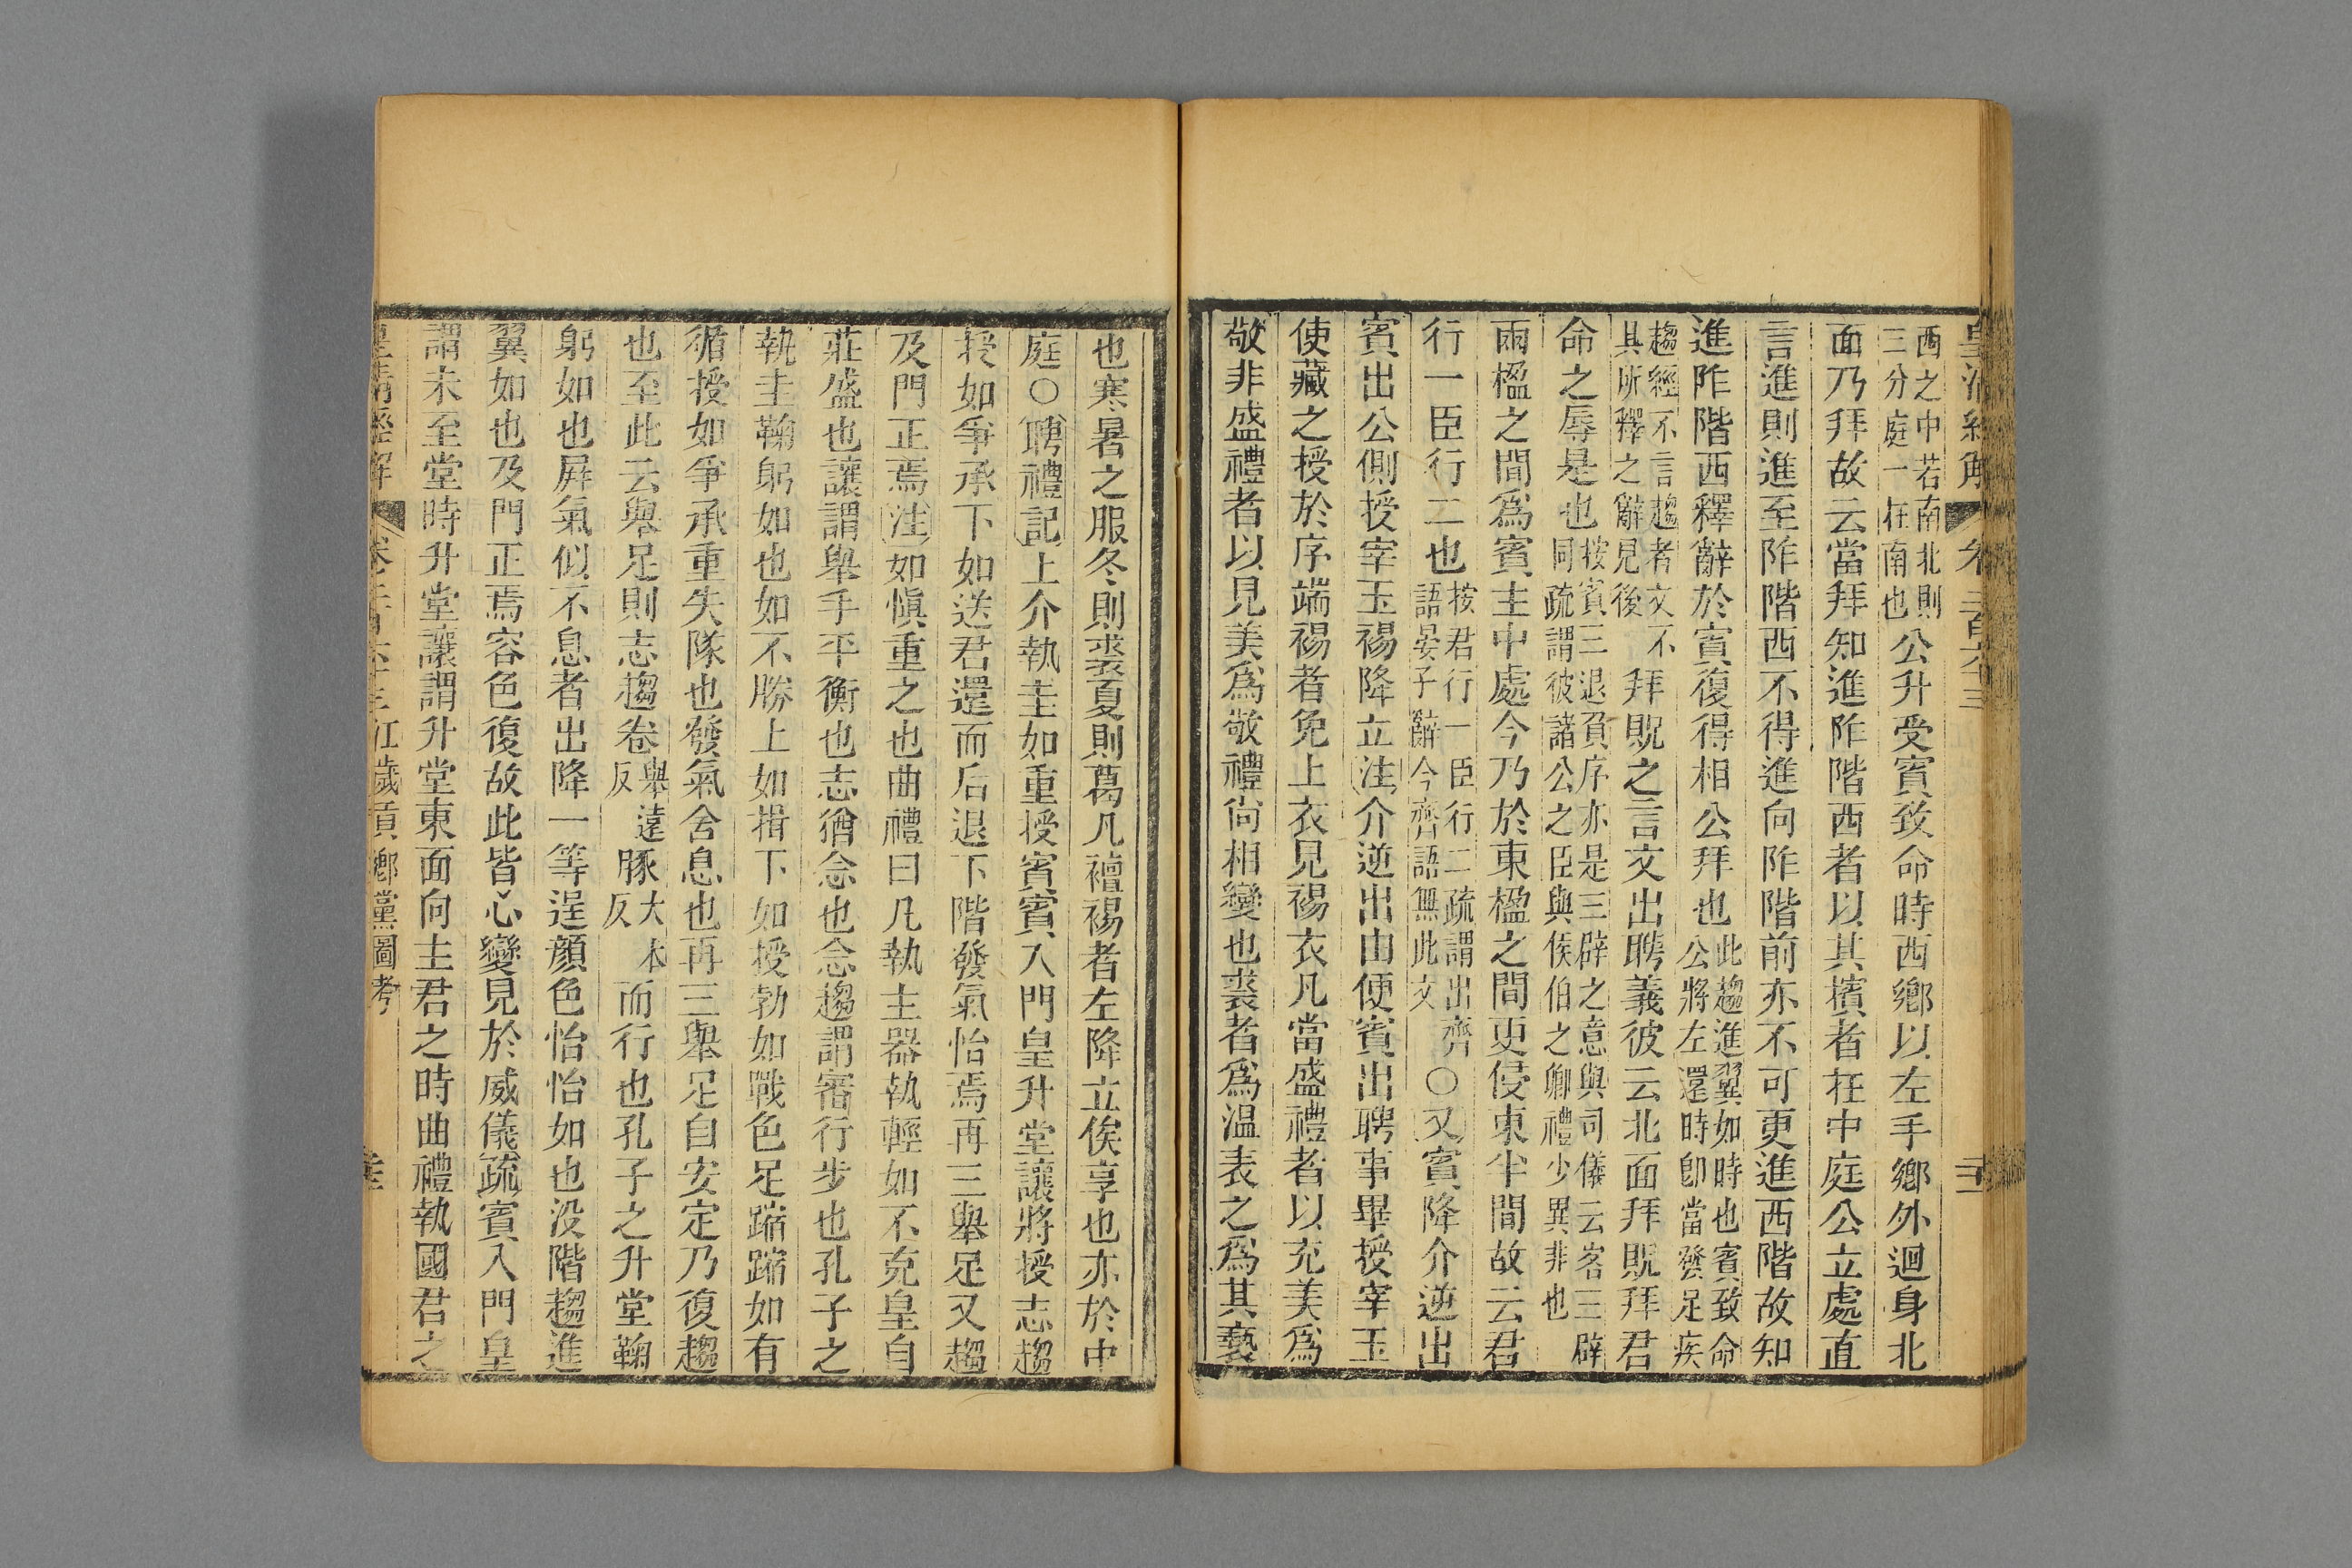 皇清經解 卷二百六十三
西之中若南北則
三分庭一在南也
公升受賓致命時西鄉以左手鄉外迴身北
面乃拜故云當拜知進阼階西者以其擯者在中庭公立處直
言進則進至阼階西不得進向阼階前亦不可更進西階故知
進阼階西釋辭於賓復得相公拜也
此趨進翼如時也賓致命
公將左還時卽當發足疾
趨經不言趨者文不
其所釋之辭見後
拜貺之言文出聘義彼云北面拜貺拜君
命之辱是也
按賓三退負序亦是三辟之意與司儀云客三辟
同疏謂彼諸公之臣與侯伯之卿禮少異非也
兩楹之間爲賓主中處今乃於東楹之間更侵東半間故云君
行一臣行二也
按君行一臣行二疏謂出齊
語晏子辭今齊語無此文
○又賓降介逆出
賓出公側授宰玉裼降立注介逆出由便賓出聘事畢授宰玉
使藏之授於序端裼者免上衣見裼衣凡當盛禮者以充美爲
敬非盛禮者以見美爲敬禮尙相變也裘者爲温表之爲其褻
也寒暑之服冬則裘夏則葛凡襢裼者左降立俟享也亦於中
庭○聘禮記上介執圭如重授賓賓入門皇升堂讓將授志趨
授如爭承下如送君還而后退下階發氣怡焉再三舉足又趨
及門正焉注如愼重之也曲禮曰凡執主器執輕如不克皇自
莊盛也讓謂舉手平衡也志猶念也念趨謂審行步也孔子之
執圭鞠躬如也如不勝上如揖下如授勃如戰色足蹜蹜如有
循授如爭承重失隊也發氣舍息也再三舉足自安定乃復趨
也至此云舉足則志趨卷
舉遠
反
豚
大本
反
而行也孔子之升堂鞠
躬如也屛氣似不息者出降一等逞顏色怡怡如也没階趨進
翼如也及門正焉容色復故此皆心變見於威儀疏賓入門皇
謂未至堂時升堂讓謂升堂東面向主君之時曲禮執國君之
皇清經解 卷二百六十三 江歲貢鄉黨圖考